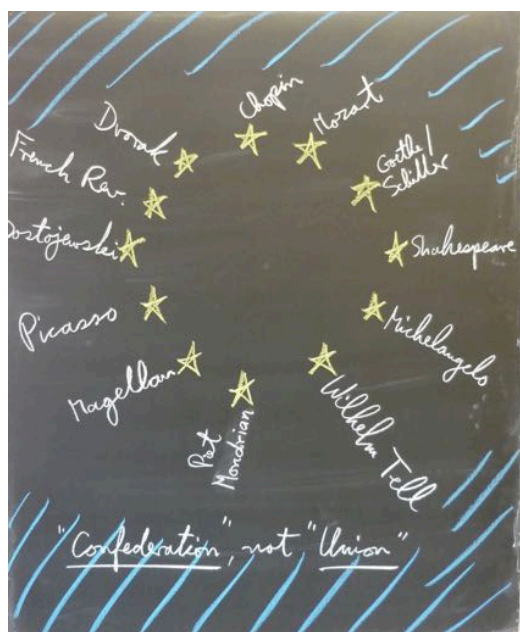 Chopin
Mozart
Goethe/
Schiller
Shakespeare
Michelangelo
Wilhelm Tell
Piet
Mondrian
Magellan
Picasso
Dostojewski
French Rev.
Dvorak
"Confederation", not "Union"